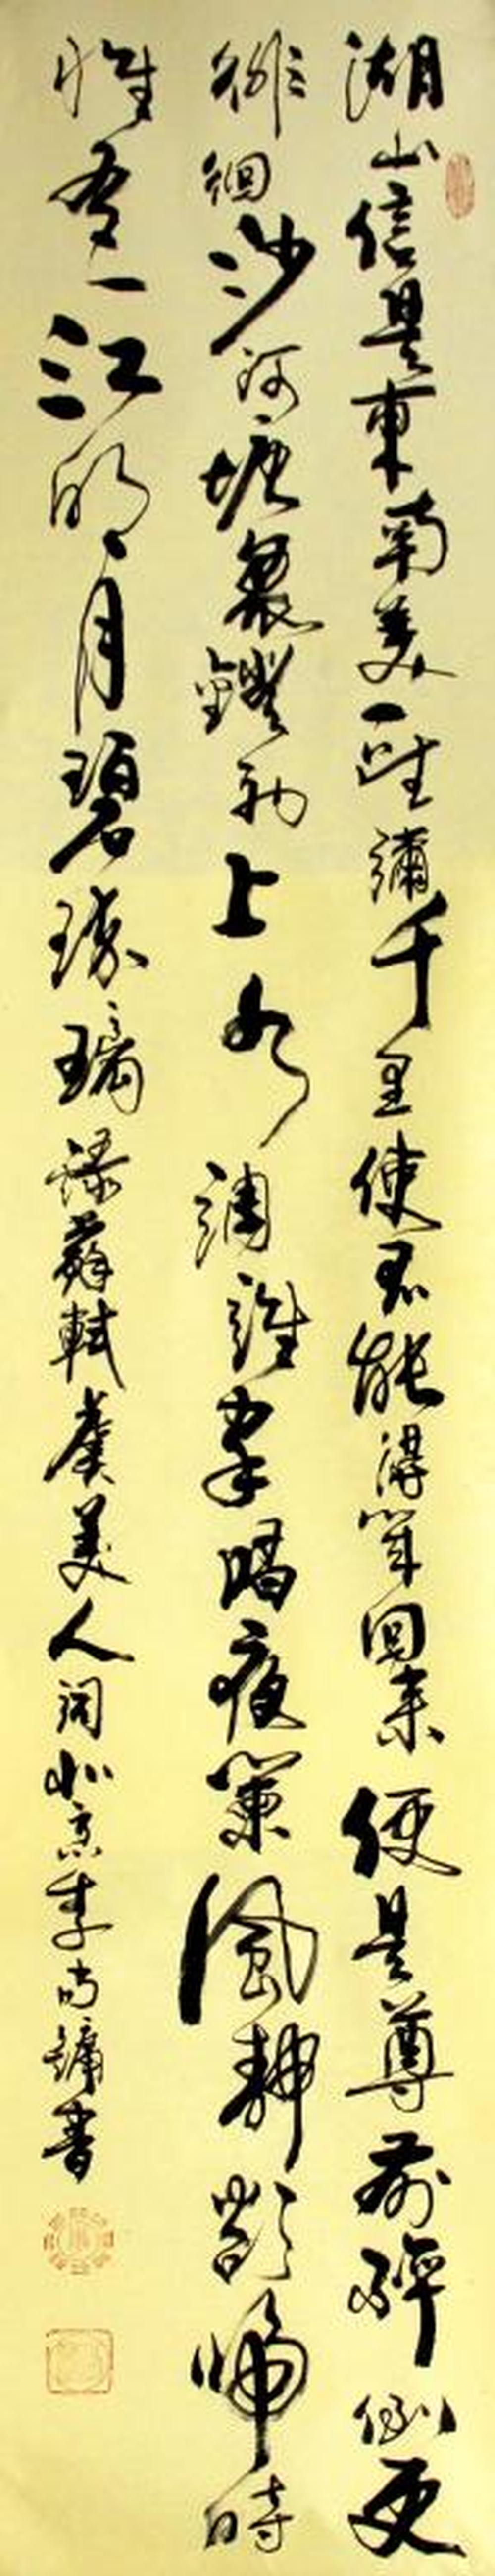 湖山信是東南美一望彌千里使君能得幾回来便是尊前醉倒更
徘徊沙河塘裏鐙初上水調誰家唱夜闌風静欲歸時
惟有一江明月碧琉璃 録蘇軾虞美人詞 北京李尚鏞書